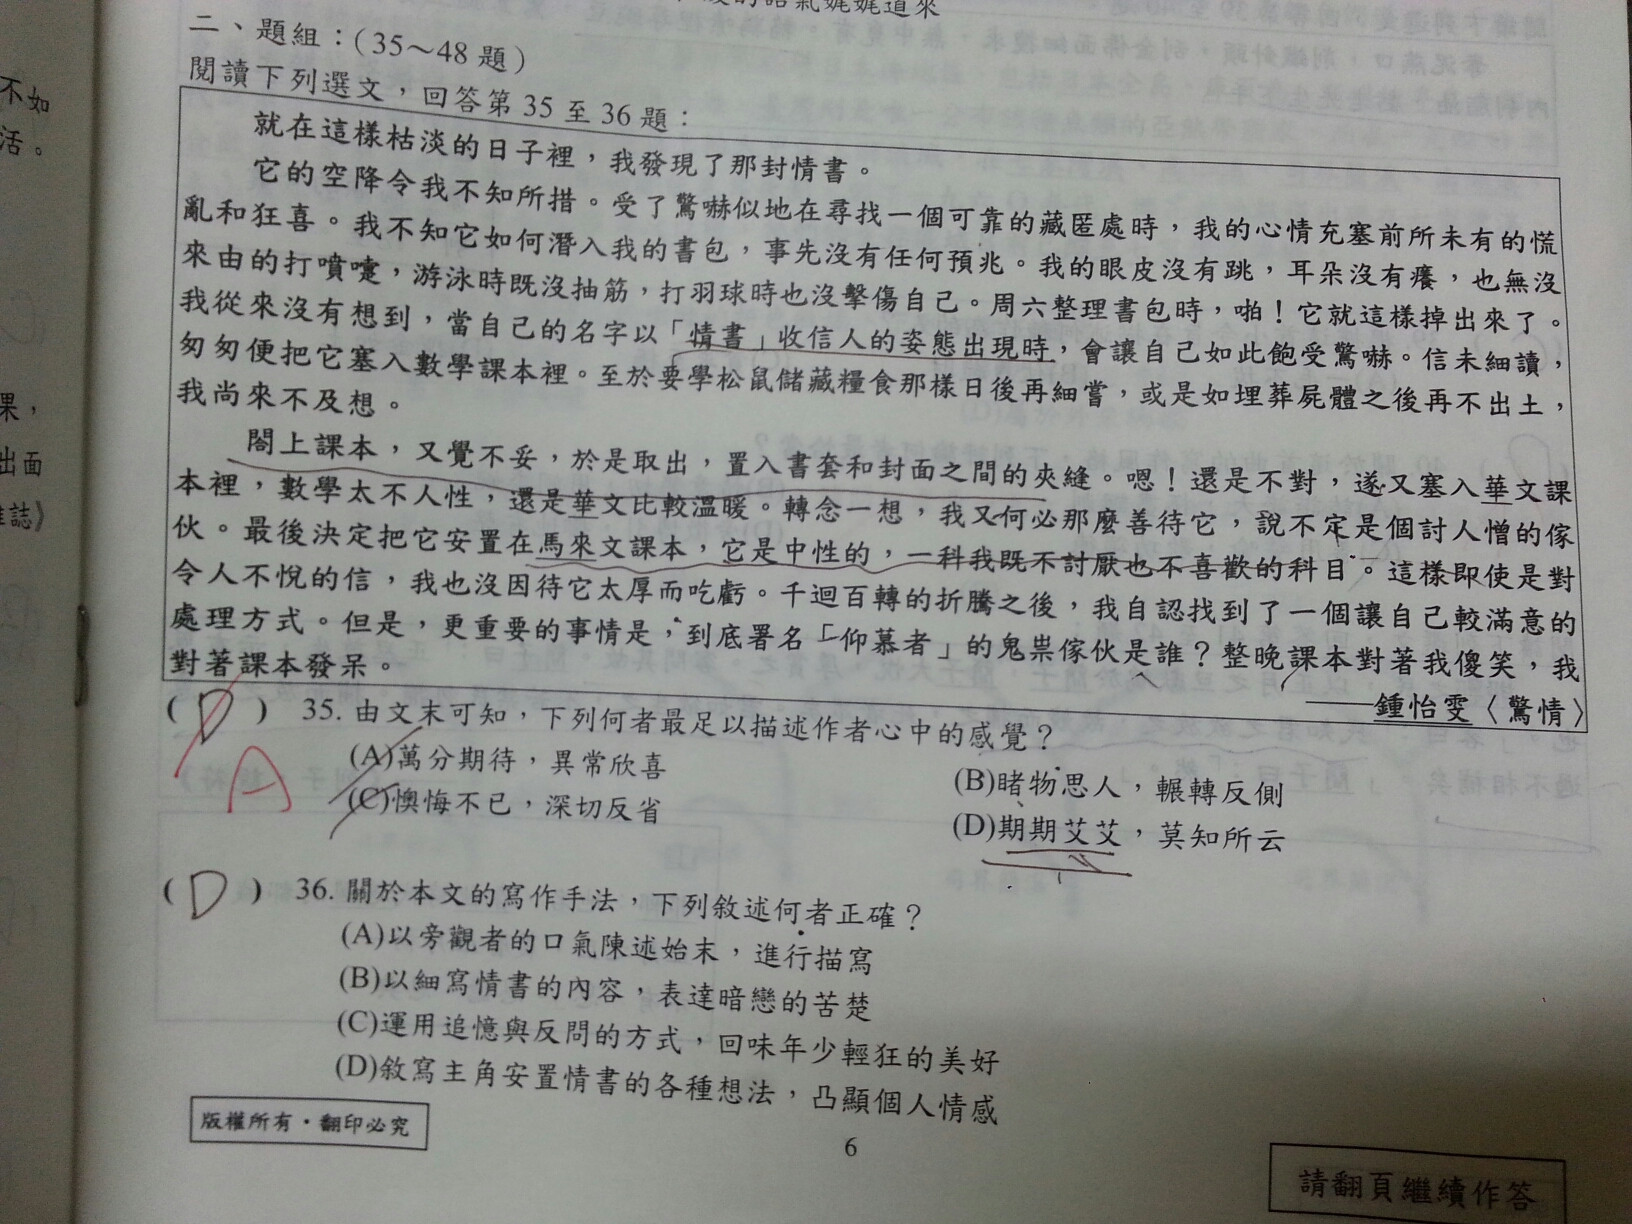 的語氣娓娓道來
二、題組：(35～48 題)
閱讀下列選文，回答第 35 至 36 題：
就在這樣枯淡的日子裡，我發現了那封情書。
它的空降令我不知所措。受了驚嚇似地在尋找一個可靠的藏匿處時，我的心情充塞前所未有的慌
亂和狂喜。我不知它如何潛入我的書包，事先沒有任何預兆。我的眼皮沒有跳，耳朵沒有癢，也無沒
來由的打噴嚏，游泳時既沒抽筋，打羽球時也沒擊傷自己。周六整理書包時，啪！它就這樣掉出來了。
我從來沒有想到，當自己的名字以「情書」收信人的姿態出現時，會讓自己如此飽受驚嚇。信未細讀，
匆匆便把它塞入數學課本裡。至於要學松鼠儲藏糧食那樣日後再細嘗，或是如埋葬屍體之後再不出土，
我尚來不及想。
閤上課本，又覺不妥，於是取出，置入書套和封面之間的夾縫。嗯！還是不對，遂又塞入華文課
本裡，數學太不人性，還是華文比較溫暖。轉念一想，我又何必那麼善待它，說不定是個討人憎的傢
伙。最後決定把它安置在馬來文課本，它是中性的，一科我既不討厭也不喜歡的科目。這樣即使是對
令人不悅的信，我也沒因待它太厚而吃虧。千迴百轉的折騰之後，我自認找到了一個讓自己較滿意的
處理方式。但是，更重要的事情是，到底署名「仰慕者」的鬼祟傢伙是誰？整晚課本對著我傻笑，我
對著課本發呆。
——鍾怡雯〈驚情〉
( D ) 35. 由文末可知，下列何者最足以描述作者心中的感覺？
A
(A)萬分期待，異常欣喜
(B)睹物思人，輾轉反側
(C)懊悔不已，深切反省
(D)期期艾艾，莫知所云
( D ) 36. 關於本文的寫作手法，下列敘述何者正確？
(A)以旁觀者的口氣陳述始末，進行描寫
(B)以細寫情書的內容，表達暗戀的苦楚
(C)運用追憶與反問的方式，回味年少輕狂的美好
(D)敘寫主角安置情書的各種想法，凸顯個人情感
版權所有・翻印必究
6
請翻頁繼續作答
不如
活。
課，
出面
誌》